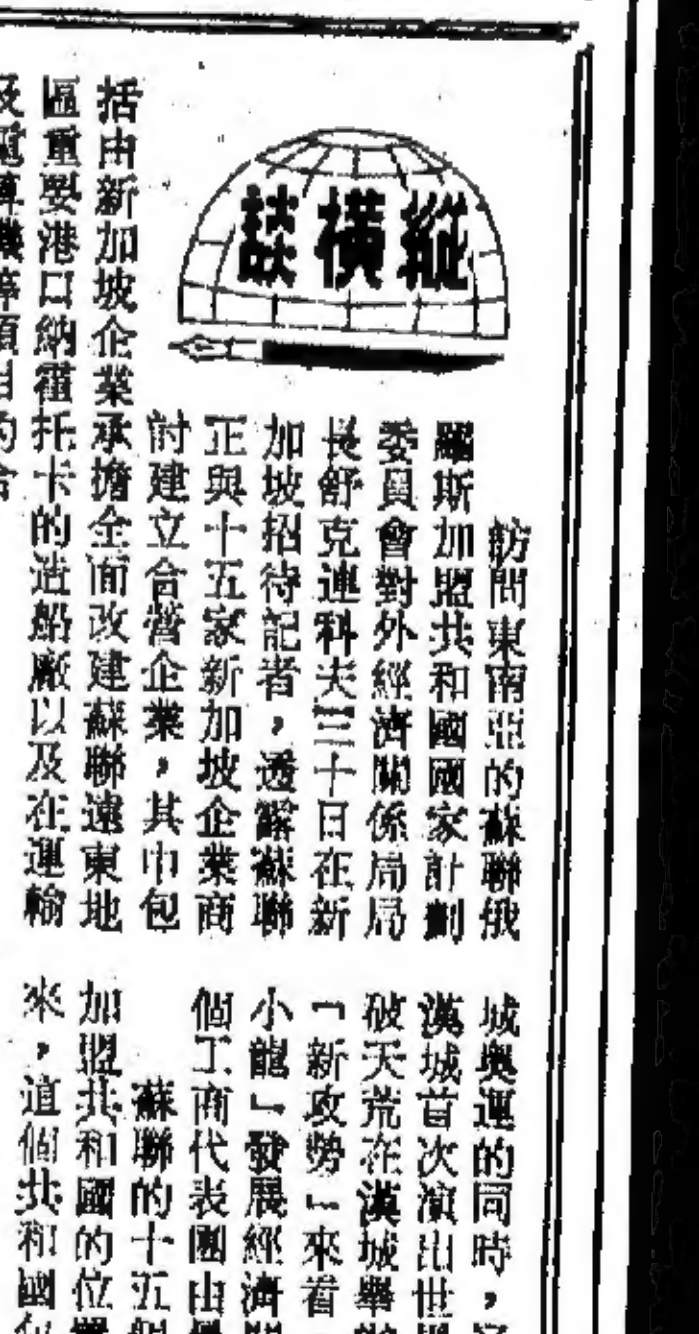 縱橫談
訪問東南亞的蘇聯俄
羅斯加盟共和國國家計劃
委員會對外經濟關係局局
長舒克連科夫三十日在新
加坡招待記者，透露蘇聯
正與十五家新加坡企業商
討建立合營企業，其中包
括由新加坡企業承擔全面改建蘇聯遠東地
區重要港口納霍托卡的造船廠以及在運輸
及電算機等項目的合
城奧運的同時，
漢城首次演出世
破天荒在漢城舉
「新攻勢」來看
小龍」發展經濟
個工商代表團由
蘇聯的十五個
加盟共和國的位置
來，這個共和國